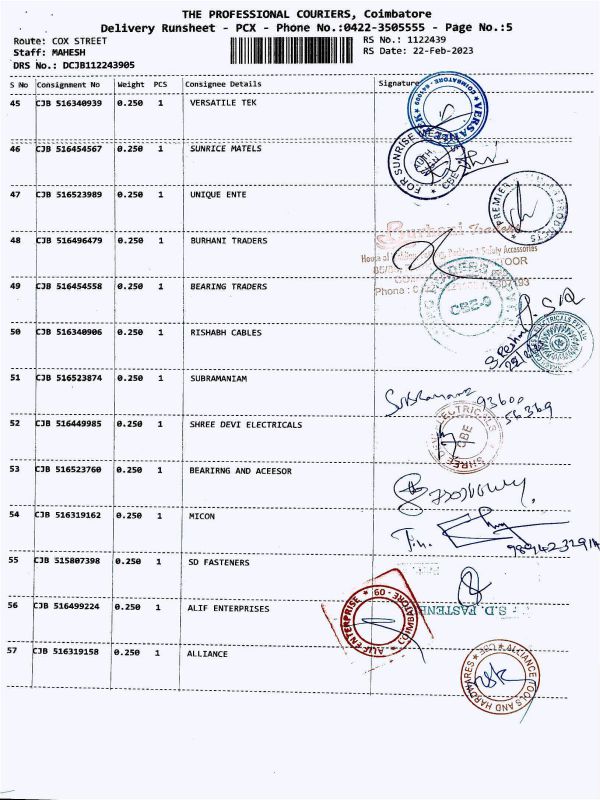 THE PROFESSIONAL COURIERS, Coimbatore
Delivery Runsheet - PCX - Phone No.:0422-3505555 - Page No.:5
Route: COX STREET RS No.: 1122439
Staff: MAHESH RS Date: 22-Feb-2023
DRS No.: DCJB112243905
S No Consignment No Weight PCS Consignee Details Signature
45 CJB 516340939 0.250 1 VERSATILE TEK
46 CJB 516454567 0.250 1 SUNRICE MATELS
FOR SUNRISE
47 CJB 516523989 0.250 1 UNIQUE ENTE
PREMIER PRODUCTS
48 CJB 516496479 0.250 1 BURHANI TRADERS
Burhani Traders
House of Safety Accessories
49 CJB 516454558 0.250 1 BEARING TRADERS
Phone :
CBE-9
50 CJB 516340906 0.250 1 RISHABH CABLES
51 CJB 516523874 0.250 1 SUBRAMANIAM
93600
56369
52 CJB 516449985 0.250 1 SHREE DEVI ELECTRICALS
SHREE ELECTRICALS
CBE
53 CJB 516523760 0.250 1 BEARIRNG AND ACEESOR
54 CJB 516319162 0.250 1 MICON
55 CJB 515807398 0.250 1 SD FASTENERS
56 CJB 516499224 0.250 1 ALIF ENTERPRISES
S.D. FASTENE
ALIF ENTERPRISE
57 CJB 516319158 0.250 1 ALLIANCE
ALLIANCE TOOLS AND HARDWARES CBE